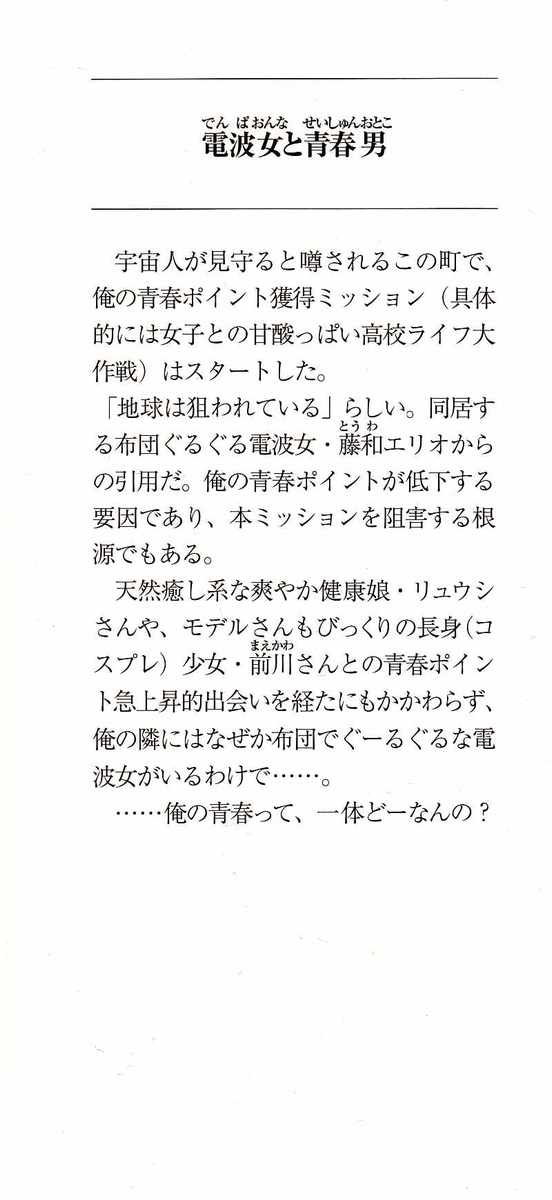 でんぱおんな せいしゅんおとこ
電波女と青春男
宇宙人が見守ると噂されるこの町で、
俺の青春ポイント獲得ミッション（具体
的には女子との甘酸っぱい高校ライフ大
作戦）はスタートした。
「地球は狙われている」らしい。同居す
とうわ
る布団ぐるぐる電波女・藤和エリオから
の引用だ。俺の青春ポイントが低下する
要因であり、本ミッションを阻害する根
源でもある。
天然癒し系な爽やか健康娘・リュウシ
さんや、モデルさんもびっくりの長身（コ
まえかわ
スプレ）少女・前川さんとの青春ポイン
ト急上昇的出会いを経たにもかかわらず、
俺の隣にはなぜか布団でぐーるぐるな電
波女がいるわけで……。
……俺の青春って、一体どーなんの？